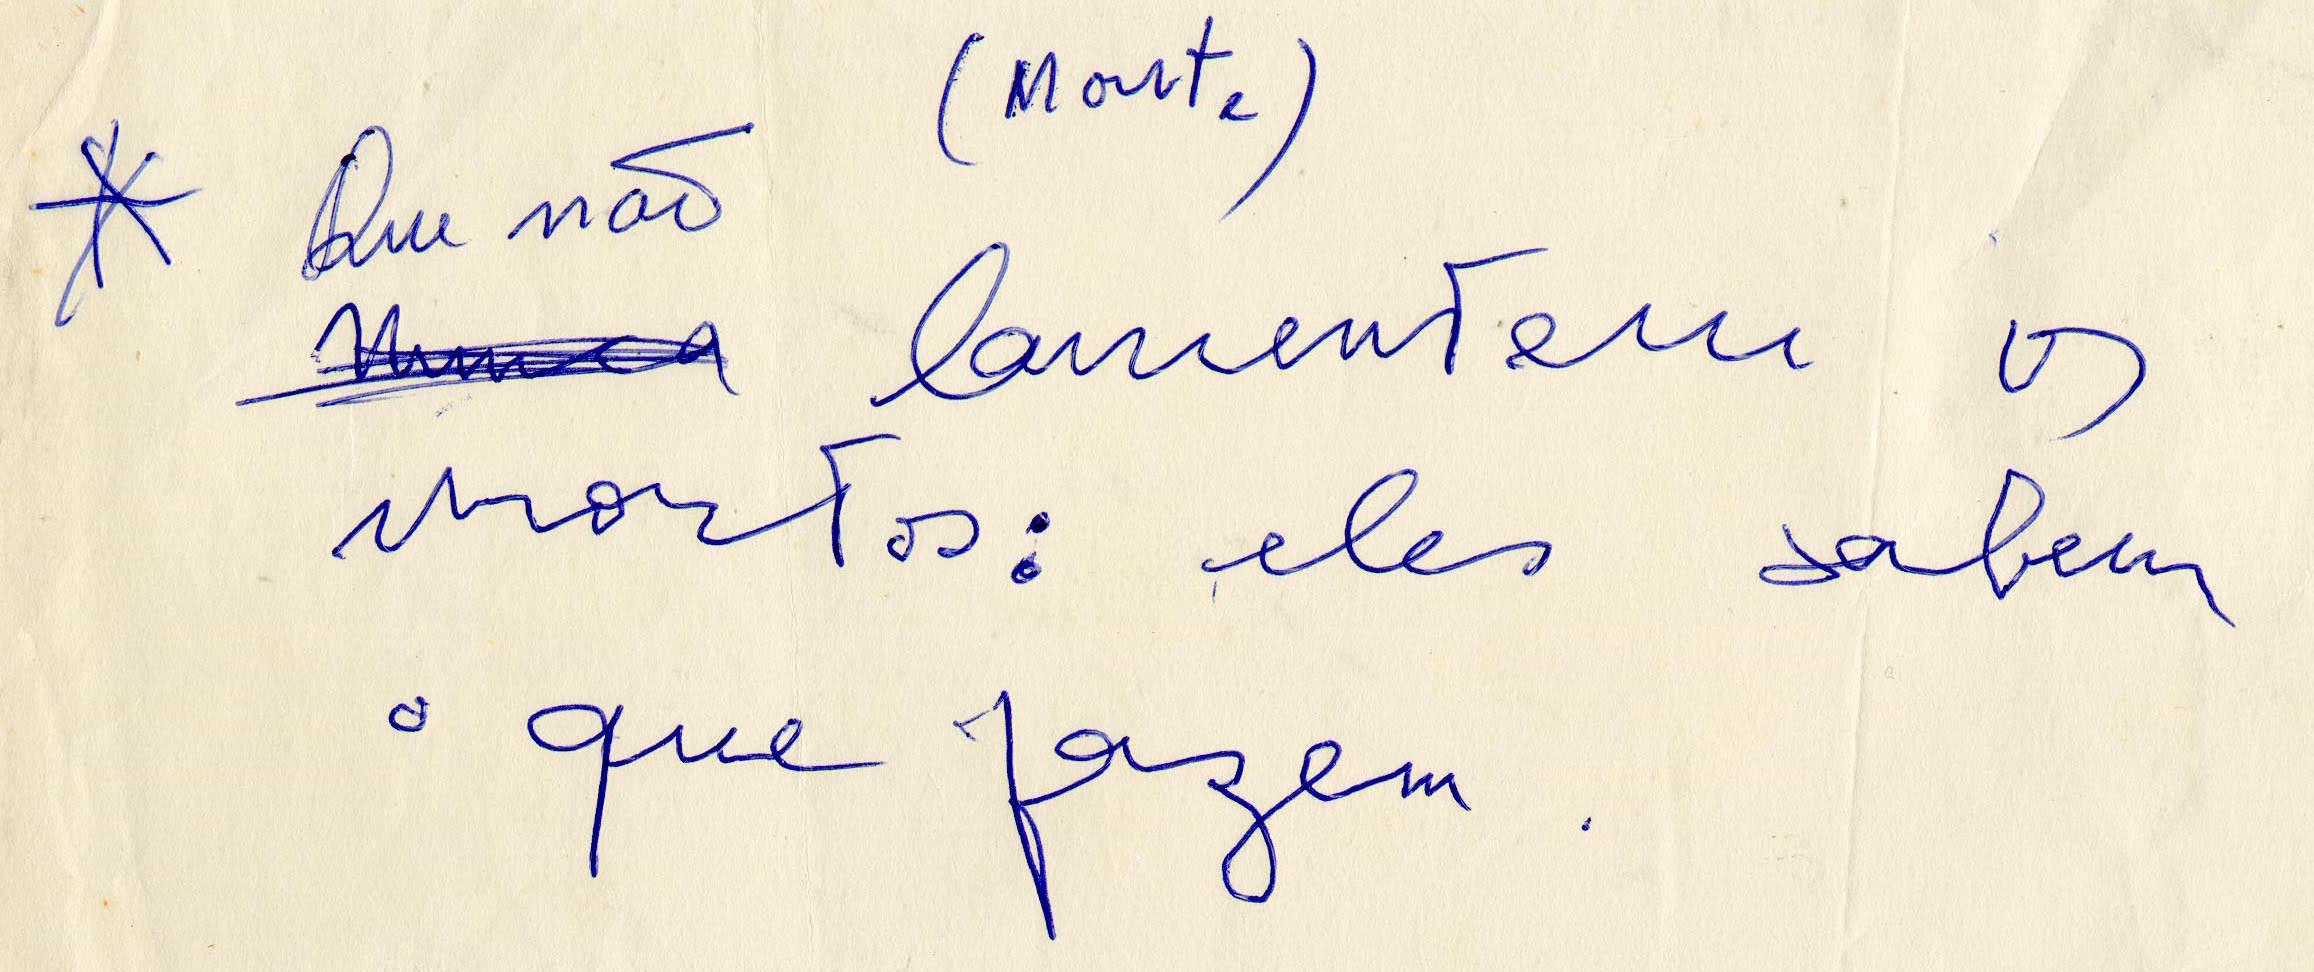 (Morte)
* Que não
Nunca lamentem os
mortos: eles sabem
o que fazem.